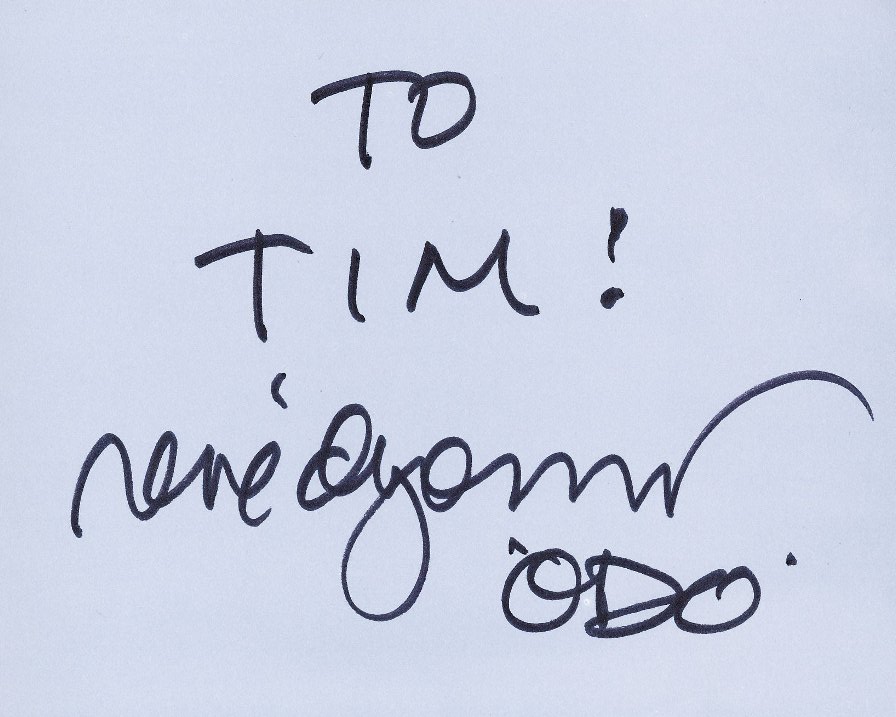 TO
TIM!
René
'ODO'